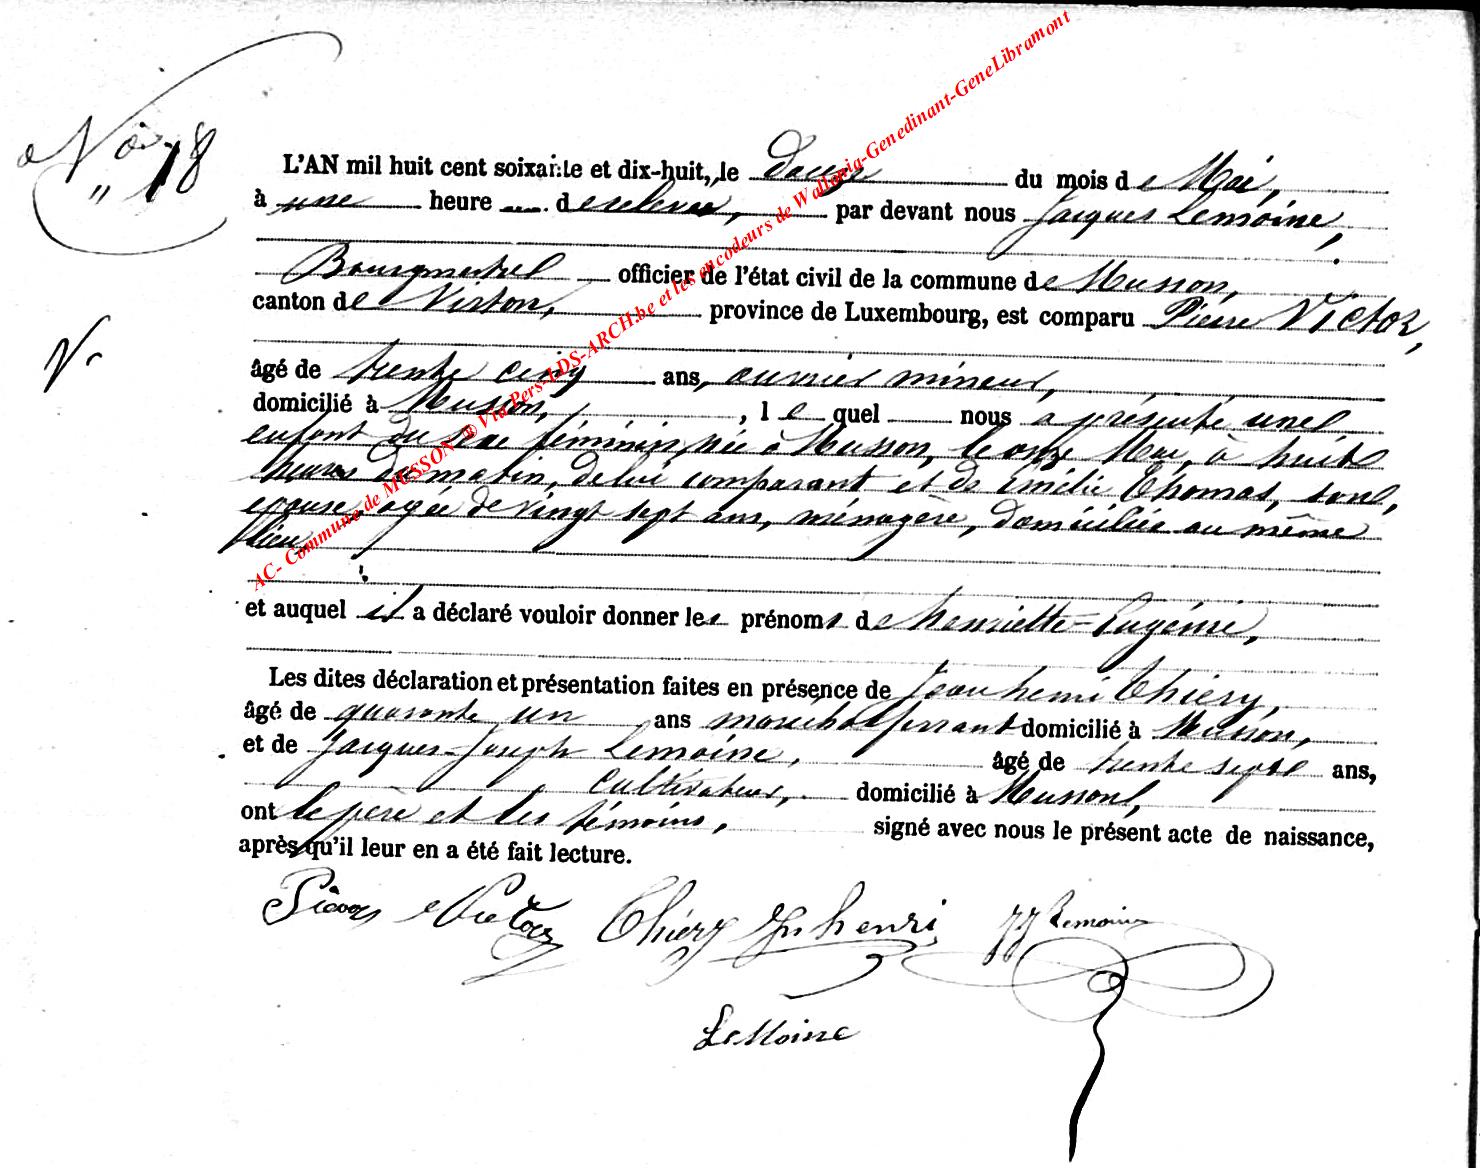 No 18
L'AN mil huit cent soixante et dix-huit, le douze du mois de Mai,
à une heure de relevée, par devant nous Jacques Lemoine,
Bourgmestre officier de l'état civil de la commune de Musson,
canton de Virton, province de Luxembourg, est comparu Pierre Victor,
âgé de trente cinq ans, ouvrier mineur,
domicilié à Musson, , lequel nous a présenté une
enfant du sexe féminin, née à Musson, le onze Mai, à huit
heures du matin, de lui comparant et de Emélie Thomas, son
épouse, agée de vingt sept ans, ménagère, domiciliée au même
lieu,
et auquel il a déclaré vouloir donner les prénoms de Henriette=Eugénie,
Les dites déclaration et présentation faites en présence de Jean henri Thiéry,
âgé de quarante un ans marechal ferrant domicilié à Musson,
et de Jacques-Joseph Lemoine, âgé de trente sept ans,
cultivateur, domicilié à Musson,
ont le père et les témoins, signé avec nous le présent acte de naissance,
après qu'il leur en a été fait lecture.
Pierre Victor Thiéry Jn henri JJ Lemoine
LeMoine
AC- Commune de MUSSON @ Via Pers-LDS-ARCH.be et les encodeurs de Wallonia-Genedinant-GeneLibramont